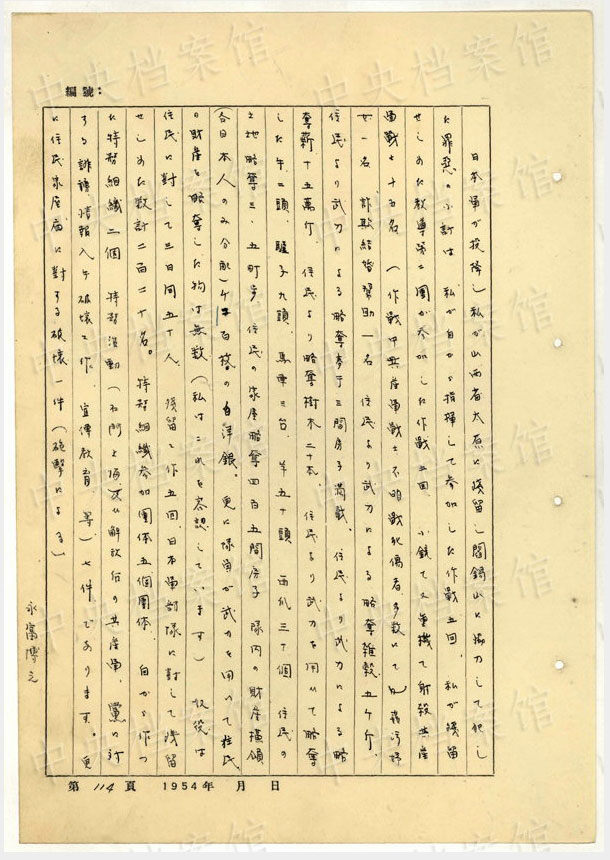 編號：
日本軍が投降し私が山西省太原に残留し閻錫山に協力して犯し
た罪惡の小計は 私が自から指揮して参加した作戦五回 私が残留
せしめた教導第二團が参加した作戦五回 小銃て又重機て射殺共産
軍戦士十五名 (作戦中共産軍戦士不明戦死傷者多数いて
女一名 詐欺結婚幇助一名 住民より武力による略奪雑穀五千斤、
住民より武力による略奪麥子三間房子満載、住民より武力による略
奪薪十五萬斤、住民より略奪樹木二十本、住民より武力を用いて略奪
した牛二頭、騾子九頭、馬車三台、羊五十頭 西瓜三十個 住民の
土地略奪三、五町歩 住民の家屋略奪四百五間房子 隊内の財産横領
(各日本人のみ分配) 白洋銀。更に隊員が武力を用いて住民
の財産を略奪した物は無数 (私はこれを容認しています) 奴役は
住民に対して三日間五十人、残留工作五回、日本軍部隊に対して残留
せしめた数計二百二十名。特務組織参加團体五個團体、自から作つ
た特務組織二個 特務活動 解放后の共産軍、黨に対
する誹謗 情報入手 破壊工作、宣傳教育 等) 七件であります。更
に住民家屋廟に対する破壊一件 (砲撃による)
永富博之
第 114 頁 1954年 月 日
中央档案馆